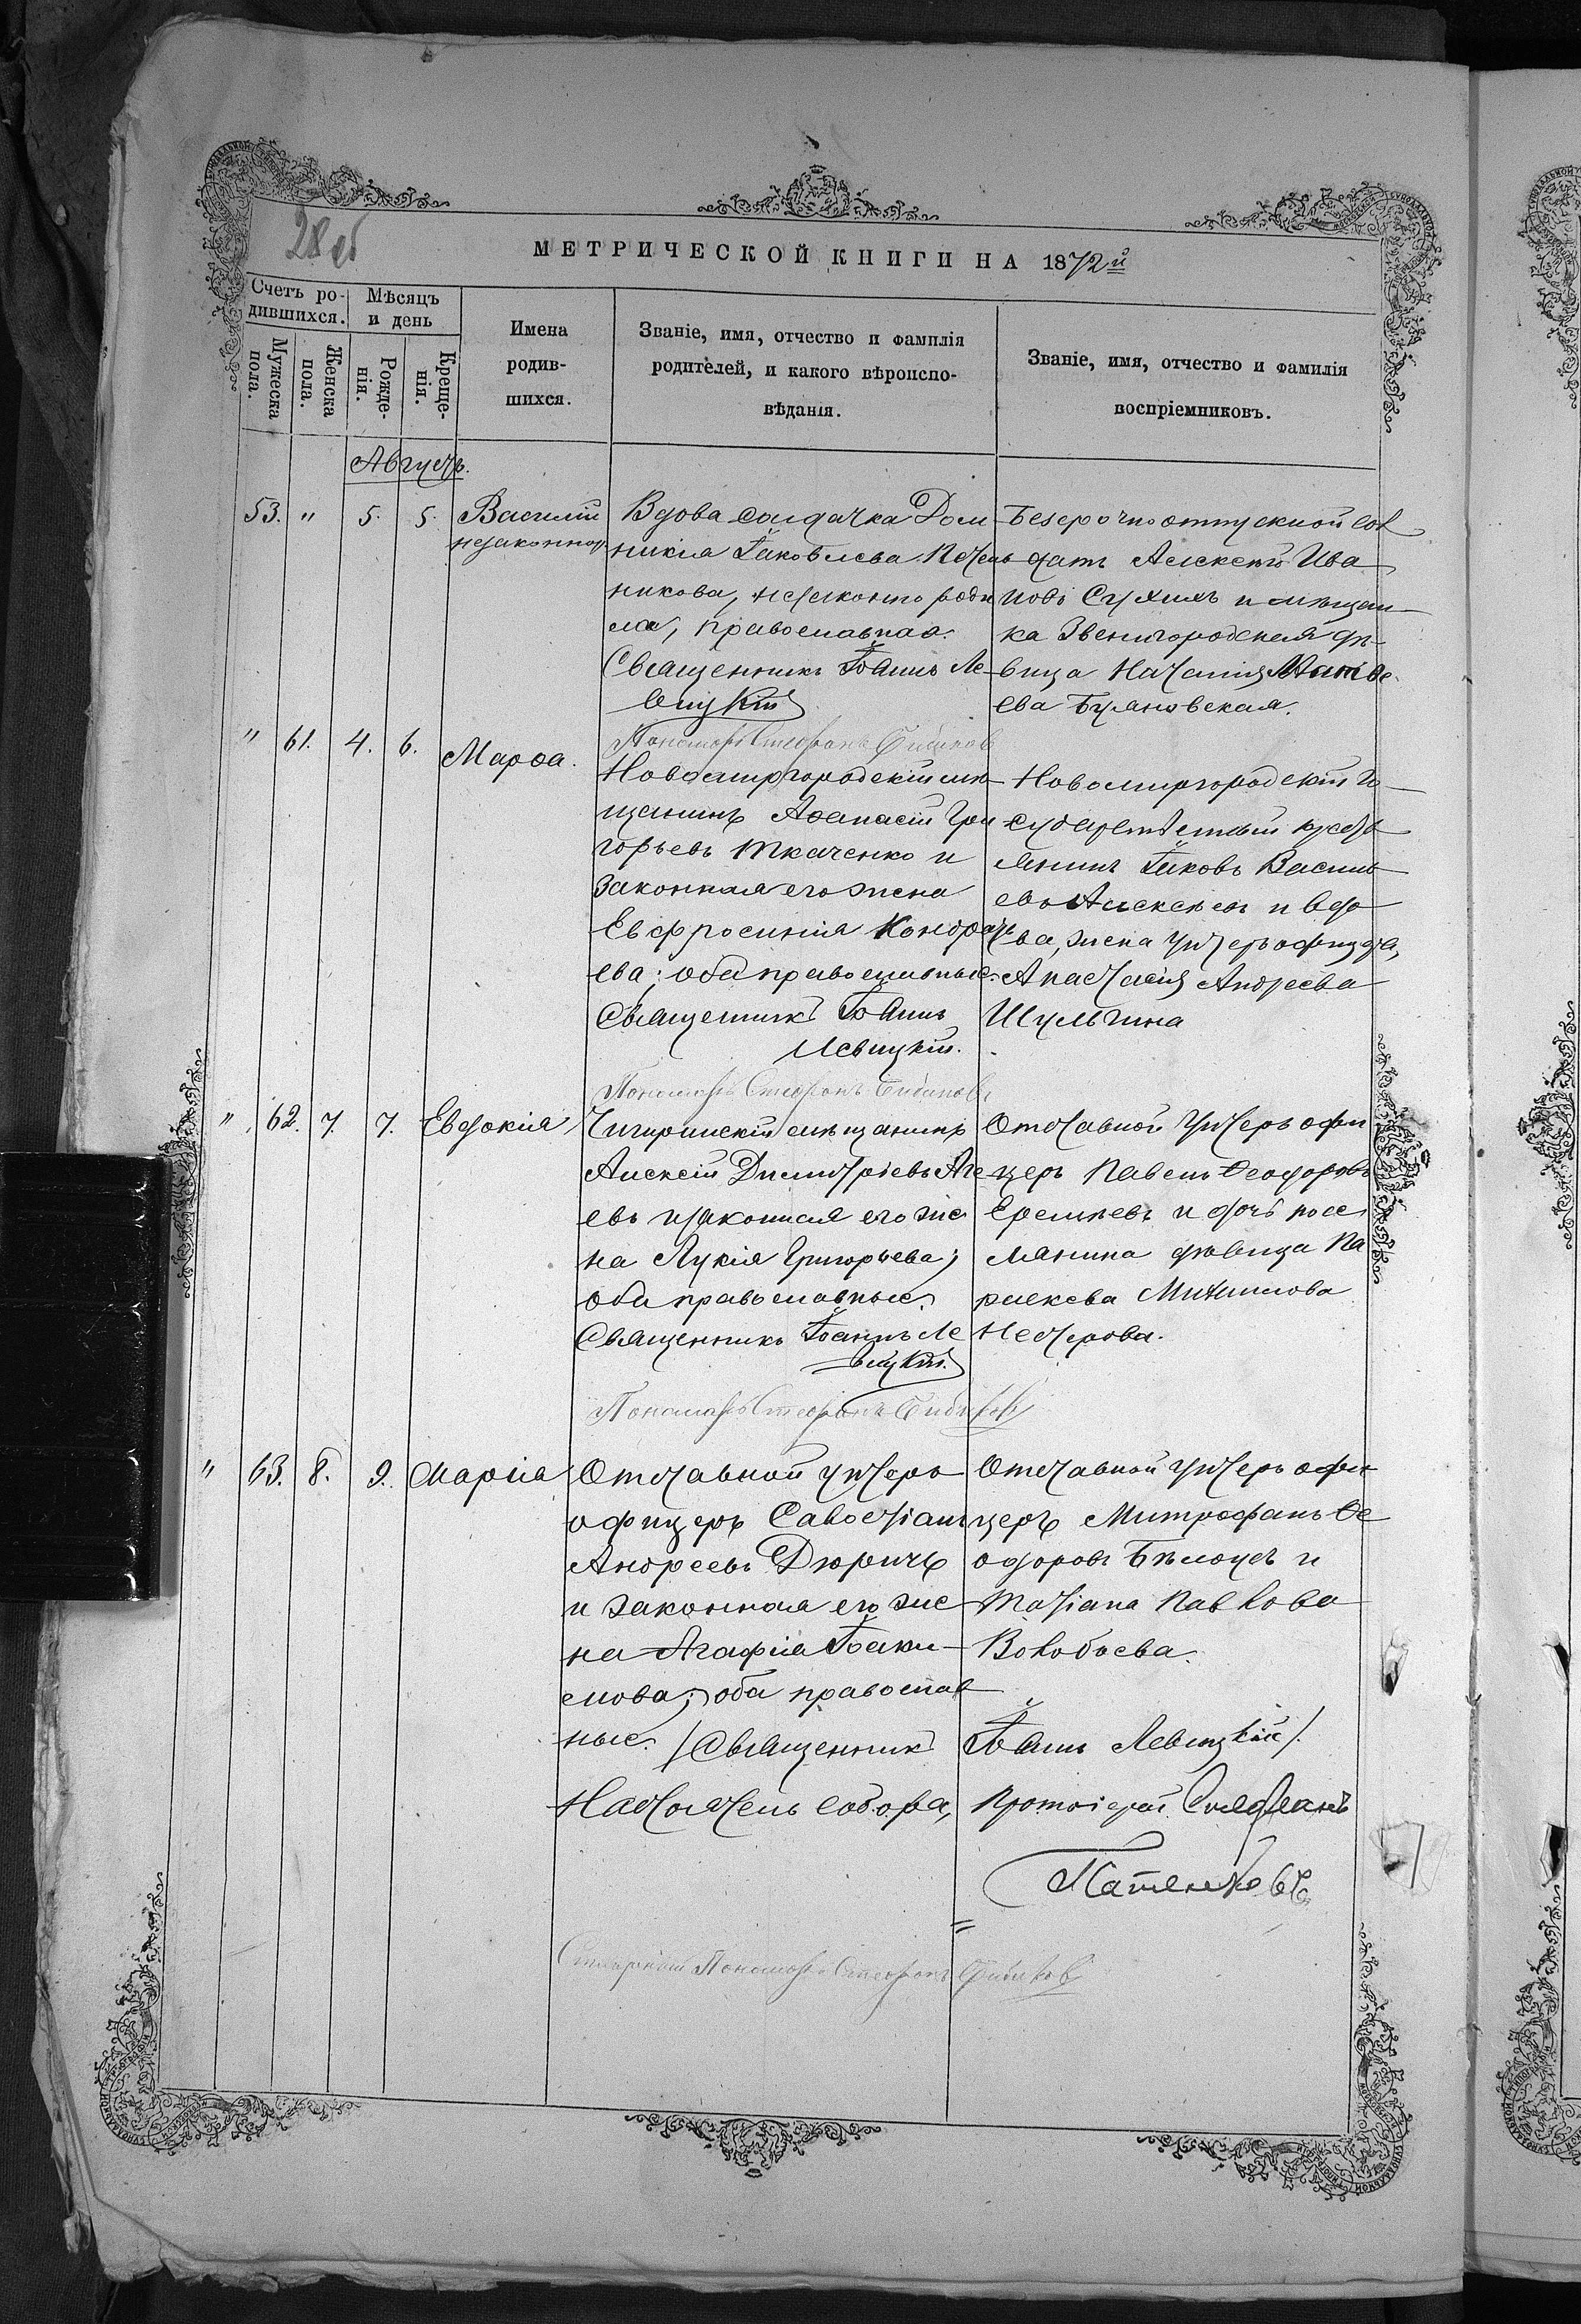 28 об
МЕТРИЧЕСКОЙ КНИГИ НА 1872й
Счетъ ро-
дившихся.
Мѣсяцъ
и день
Мужеска
пола.
Женска
пола.
Рожде-
нія.
Креще-
нія.
Имена
родив-
шихся.
Званіе, имя, отчество и фамилія
родителей, и какого вѣроиспо-
вѣданія.
Званіе, имя, отчество и фамилія
воспріемниковъ.
Августъ.
53. " 5. 5. Василій
незаконнор.
Вдова солдачка Дом
никія Іаковлева
никова, незаконно роди
ла, православная.
Священникъ Іоаннъ Ле-
вицкій
Пономарь Стефанъ
Безсрочноотпускной сол
датъ Алексѣй Ива
новъ Сухихъ и мѣщан
ка Звенигородская дѣ-
вица Наталія Матѳе
ева Буяновская.
" 61. 4. 6. Марѳа.
Новомиргородскій мѣ-
щанинъ Аѳанасій Гри
горьевъ Ткаченко и
законная его жена
Евфросинія Кондрать
ева; оба православные.
Священникъ Іоаннъ
Левицкій.
Пономарь Стефанъ
Новомиргородскій Го-
сударственный кресть
янинъ Іаковъ Василь
евъ Алексѣевъ и вдо
ва, жена унтеръ офицера,
Анастасія Андреева
Шульгина
" 62. 7. 7. Евдокія
Чигиринскій мѣщанинъ
Алексій Димитріевъ Аге
евъ и законная его же
на Лукія Григорьева;
оба православные.
Священникъ Іоаннъ Ле
вицкій.
Пономарь Стефанъ
Отставной Унтеръ офи
церъ Павелъ Ѳеодоровъ
Еремѣевъ и дочь посе
лянина дѣвица Па
раскева Михаилова
Нестерова.
" 63. 8. 9. Марія
Отставной унтеръ
офицеръ Савостіанъ
Андреевъ Дюричъ
и законная его же
на Агафія Іоаки-
мова; оба православ
ные. /Священникъ
Отставной Унтеръ офи
церъ Митрофанъ Ѳе
одоровъ Бѣлоусъ и
Татіана Павлова
Волобоева.
Іоаннъ Левицкій/.
Настоятель собора, Протоіерей
Старшій Пономарь Стефанъ